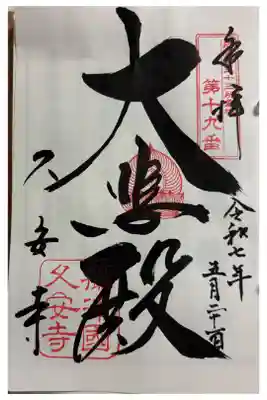 奉拝
第十九番
大悲殿
久安寺
令和七年
五月二十一日
摂津國
久安寺